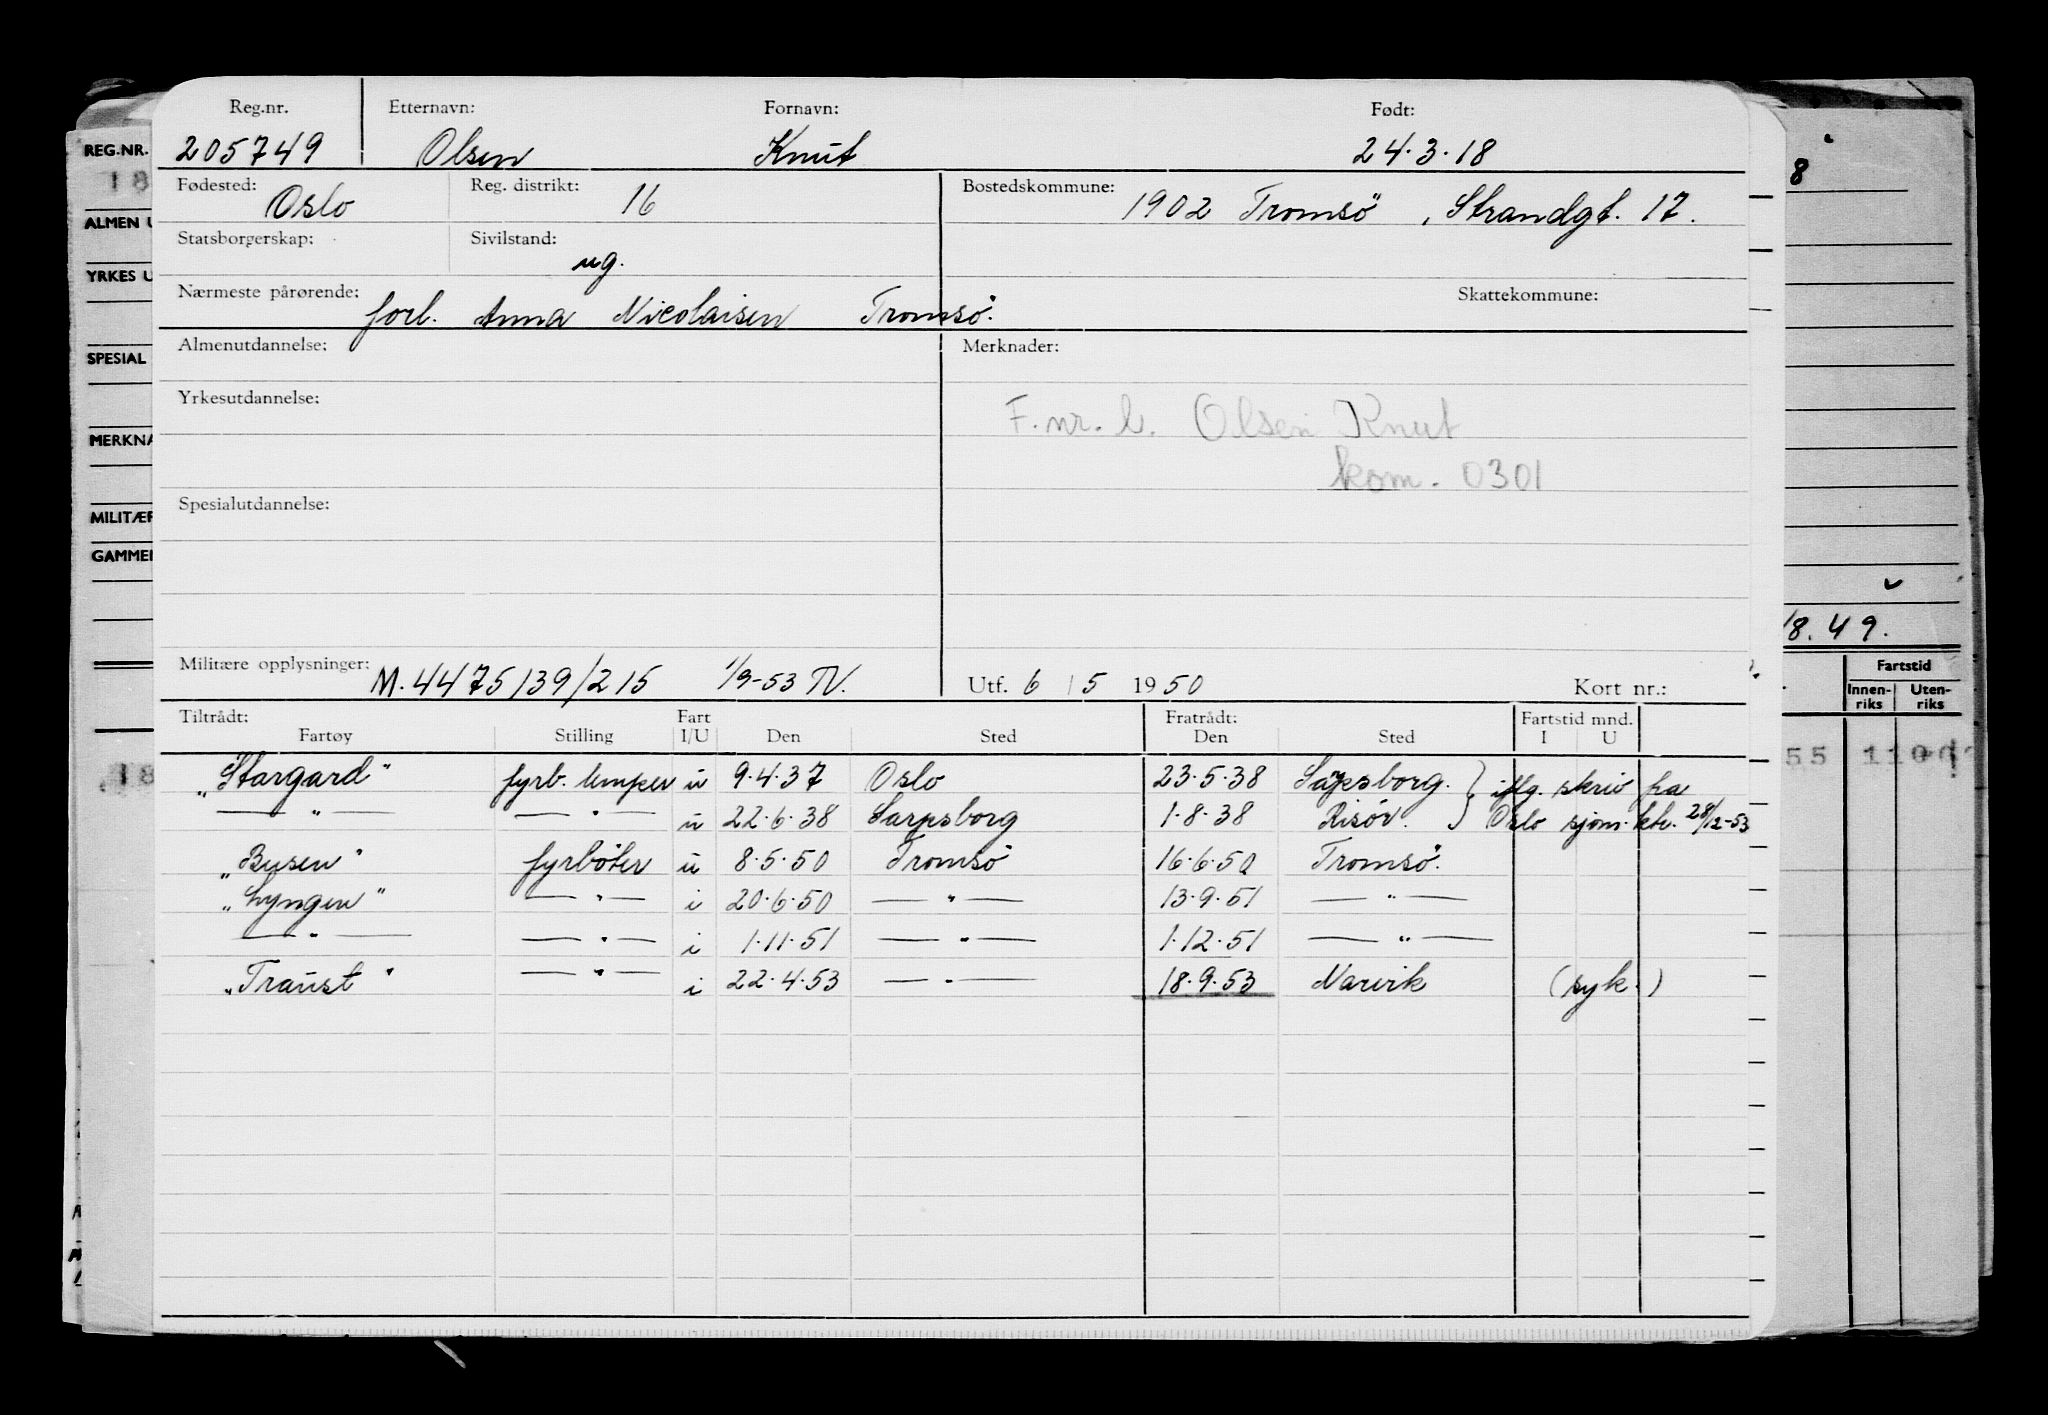 Reg.nr. Etternavn: Fornavn: Født:
205749 Olsen Knut 24.3.18
Fødested: Oslo Reg. distrikt: 16 Bostedskommune: 1902 Tromsö, Strandgt. 17.
Statsborgerskap: Sivilstand: ug.
Nærmeste pårørende: forl. Anna Nicolaisen Tromsö. Skattekommune:
Almenutdannelse: Merknader:
Yrkesutdannelse:
F.nr. b. Olsen Knut
kom. 0301
Spesialutdannelse:
Militære opplysninger: M.4475/39/215 1/9-53 TV. Utf. 6/5 1950 Kort nr.:
Tiltrådt: Fart Fratrådt: Fartstid mnd.
Fartøy Stilling I/U Den Sted Den Sted I U
"Stargard" fyrb. lemper u 9.4.37 Oslo 23.5.38 Sarpsborg. } iflg. skriv fra
— " — — " — u 22.6.38 Sarpsborg 1.8.38 Risör. } Oslo sjöm.ktr. 28/12-53
"Busen" fyrböter u 8.5.50 Tromsö 16.6.50 Tromsö.
"Lyngen" — " — i 20.6.50 — " — 13.9.51 — " —
— " — — " — i 1.11.51 — " — 1.12.51 — " —
"Traust" — " — i 22.4.53 — " — 18.9.53 Narvik (syk.)
REG.NR.
18
ALMEN U
YRKES U
SPESIAL
MERKNA
MILITÆR
GAMMEL
18
8
/8.49.
Fartstid
Innen-riks Uten-riks
55